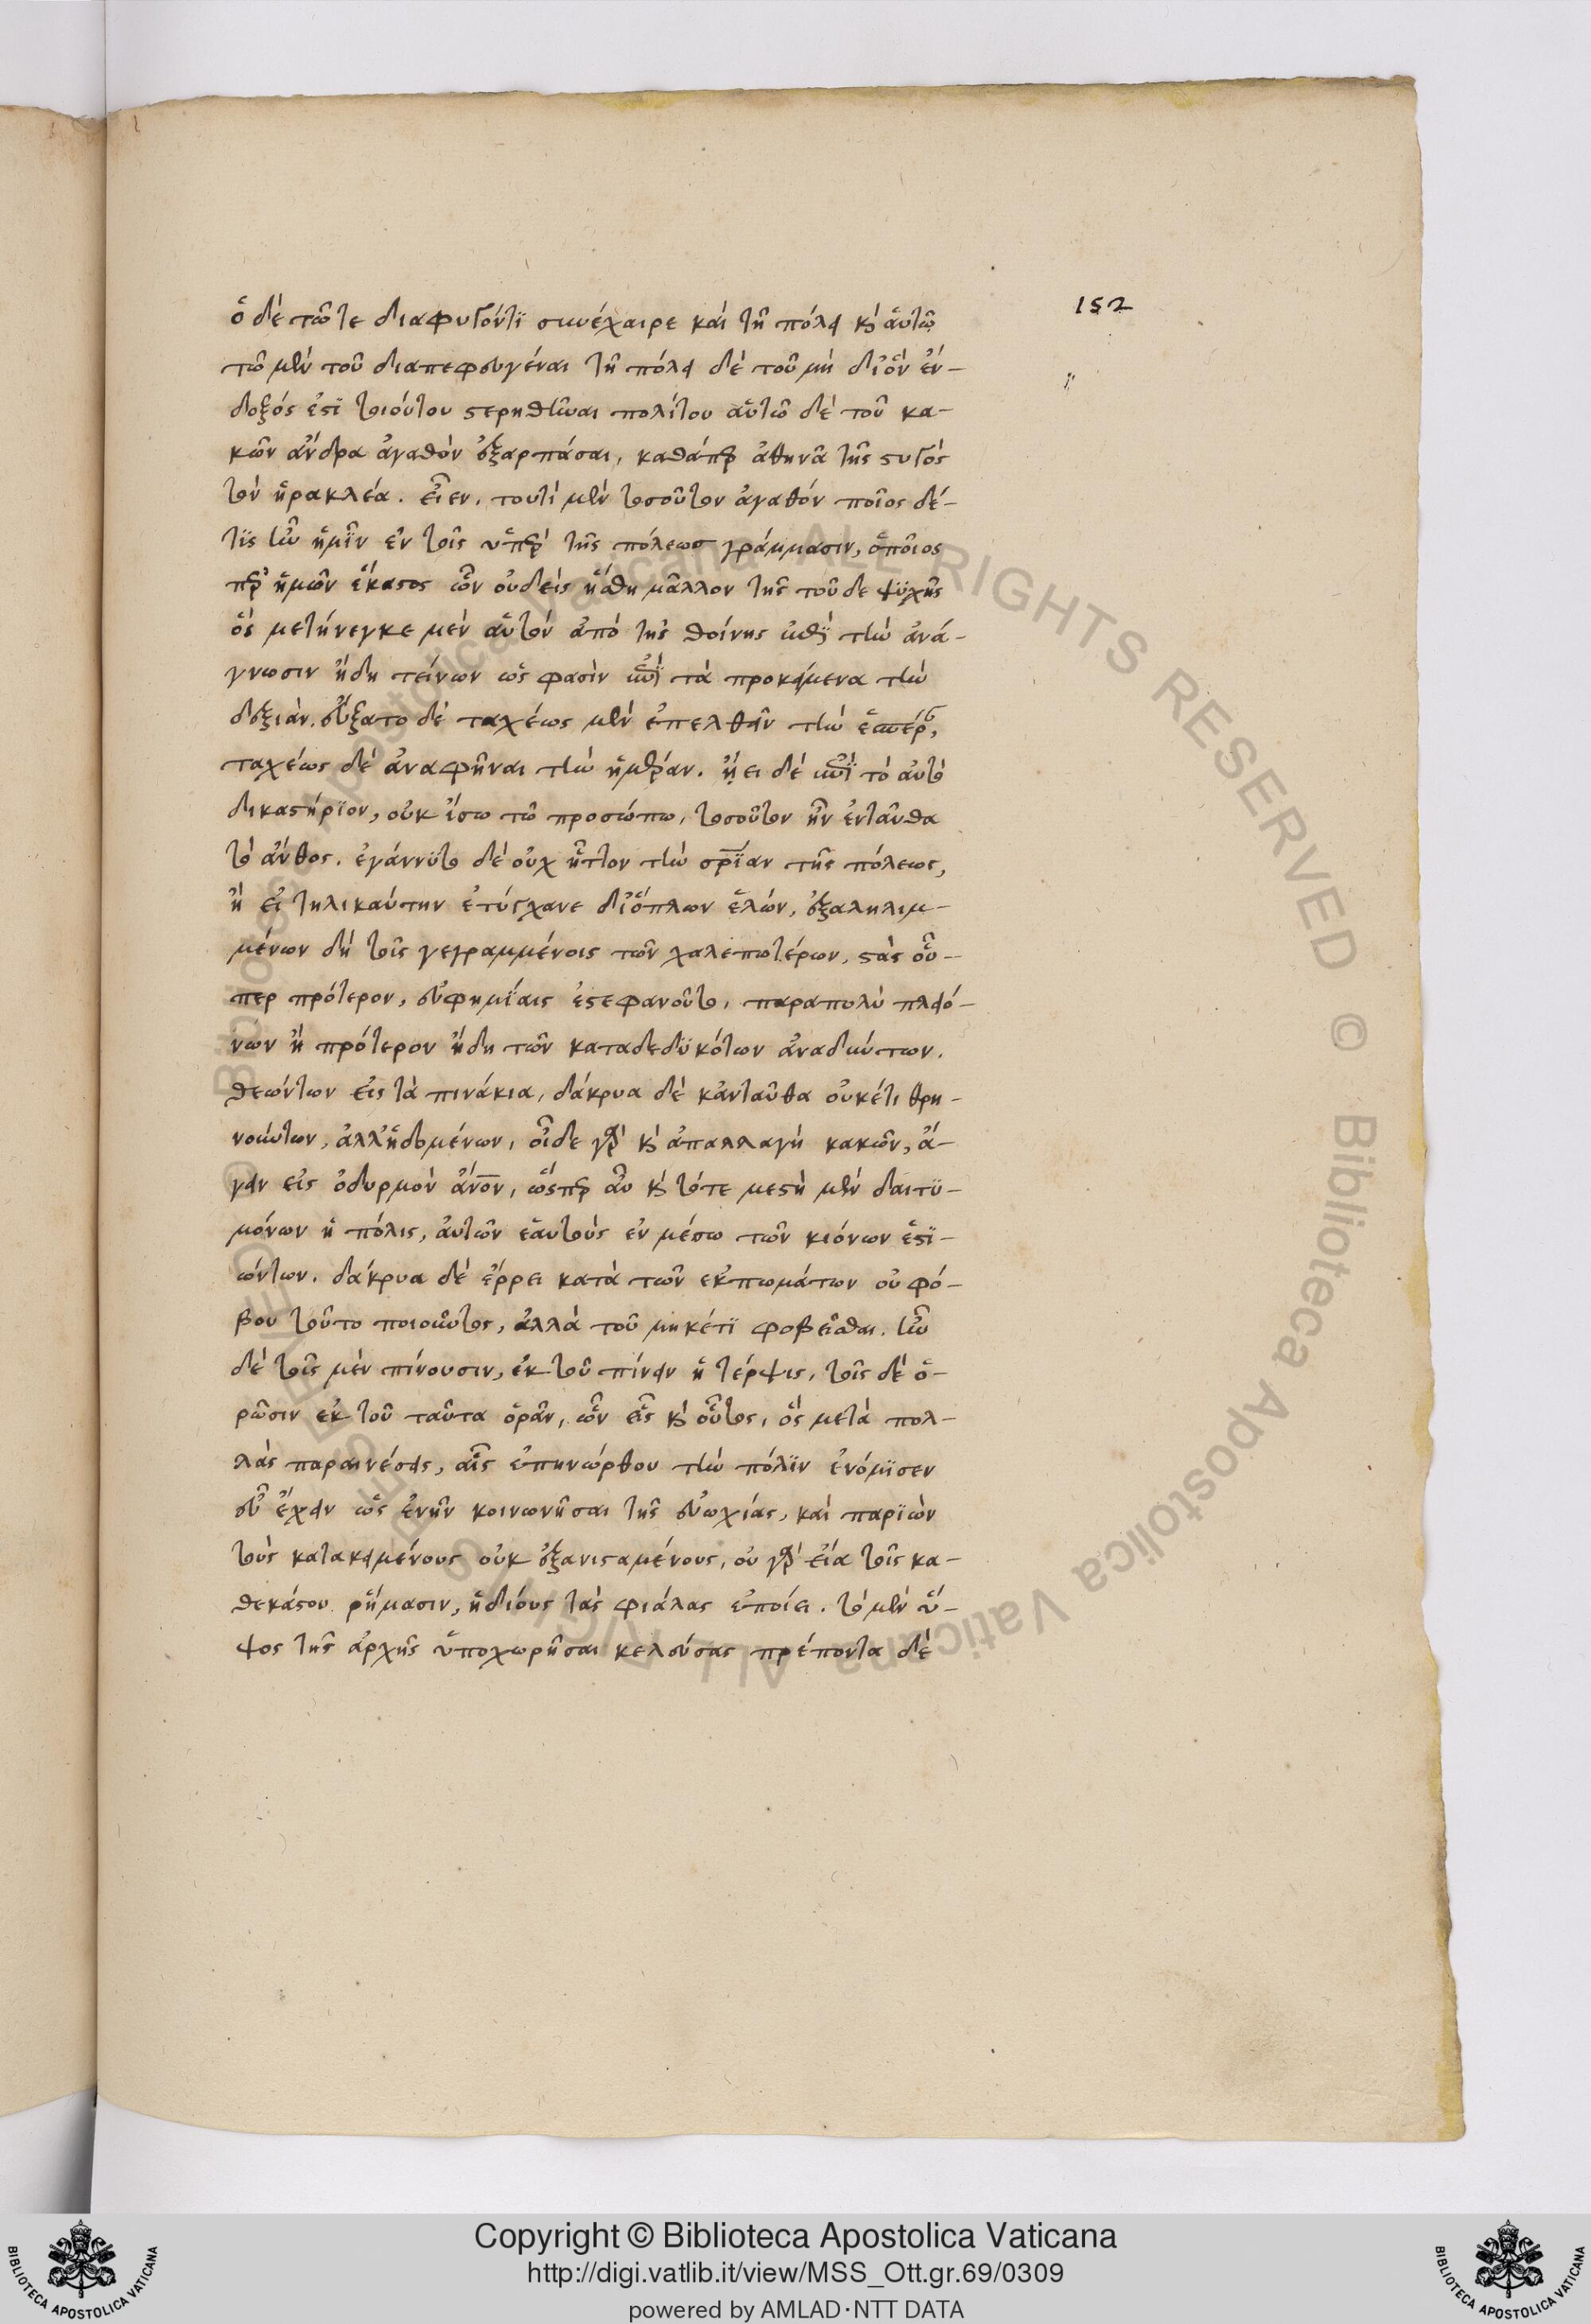 152
ὁ δὲ τῶ τε διαφυγόντι συνέχαιρε καὶ τῆ πόλει καὶ αὑτῶ
τῶ μὲν τοῦ διαπεφευγέναι τῆ πόλει δὲ τοῦ μὴ δι' ὃν ἔν-
δοξός ἐστι τοιούτου στερηθῆναι πολίτου αὑτῶ δὲ τοῦ κα-
κῶν ἄνδρα ἀγαθὸν ἐξαρπάσαι, καθάπερ ἀθηνᾶ τῆς στυγὸς
τὸν ἡρακλέα. εἶεν. τουτὶ μὲν τοσοῦτον ἀγαθόν ποῖος δέ
τις ἦν ἡμῖν ἐν τοῖς ὑπὲρ τῆς πόλεως γράμμασιν, ὁποῖος
περὶ ἡμῶν ἕκαστος ὧν οὐδεὶς ἥσθη μᾶλλον τῆς τοῦδε ψυχῆς
ὃς μετήνεγκε μὲν αὑτὸν ἀπὸ τῆς θοίνης ἐπὶ τὴν ἀνά-
γνωσιν ἤδη τείνων ὥς φασὶν ἐπὶ τὰ προκείμενα τὴν
δεξιάν. εὔξατο δὲ ταχέως μὲν ἐπελθεῖν τὴν ἑσπέραν,
ταχέως δὲ ἀναφῆναι τὴν ἡμέραν. ᾔει δὲ ἐπὶ τὸ αὐτὸ
δικαστήριον, οὐκ ἴσω τῶ προσώπω, τοσοῦτον ἦν ἐνταῦθα
τὸ ἄνθος. ἐγάννυτο δὲ οὐχ ἧττον τὴν σωτηρίαν τῆς πόλεως,
ἢ εἰ τηλικαύτην ἐτύγχανε δι' ὅπλων ἑλών, ἐξαληλιμ-
μένων δὴ τοῖς γεγραμμένοις τῶν χαλεπωτέρων, στὰς οὗ-
περ πρότερον, εὐφημίαις ἐστεφανοῦτο, παραπολὺ πλειό-
νων ἢ πρότερον ἤδη τῶν καταδεδυκότων ἀναδύντων.
θεόντων εἰς τὰ πινάκια, δάκρυα δὲ κἀνταῦθα οὐκέτι θρη-
νούντων, ἀλλ' ἡδομένων, οἶδε γὰρ καὶ ἀπαλλαγὴ κακῶν, ἄ-
γειν εἰς ὀδυρμὸν ἄνθρωπον, ὥσπερ αὖ καὶ τότε μεστὴ μὲν δαιτυ-
μόνων ἡ πόλις, αὐτῶν ἑαυτοὺς ἐν μέσω τῶν κιόνων ἑστι-
ώντων. δάκρυα δὲ ἔρρει κατὰ τῶν ἐκπωμάτων οὐ φό-
βου τοῦτο ποιοῦντος, ἀλλὰ τοῦ μηκέτι φοβεῖσθαι. ἦν
δὲ τοῖς μὲν πίνουσιν, ἐκ τοῦ πίνειν ἡ τέρψις, τοῖς δὲ ὁ-
ρῶσιν ἐκ τοῦ ταῦτα ὁρᾶν, ὧν εἷς καὶ οὗτος, ὃς μετὰ πολ-
λὰς παραινέσεις, αἷς ἐπηνώρθου τὴν πόλιν ἐνόμισεν
εὖ ἔχειν ὡς ἐνῆν κοινωνῆσαι τῆς εὐωχίας, καὶ παριὼν
τοὺς κατακειμένους οὐκ ἐξανισταμένους, οὐ γὰρ εἴα τοῖς κα-
θεκάστου ῥήμασιν, ἡδίους τὰς φιάλας ἐποίει. τὸ μὲν ὕ-
ψος τῆς ἀρχῆς ὑποχωρῆσαι κελεύσας πρέποντα δὲ
Copyright © Biblioteca Apostolica Vaticana
http://digi.vatlib.it/view/MSS_Ott.gr.69/0309
powered by AMLAD·NTT DATA